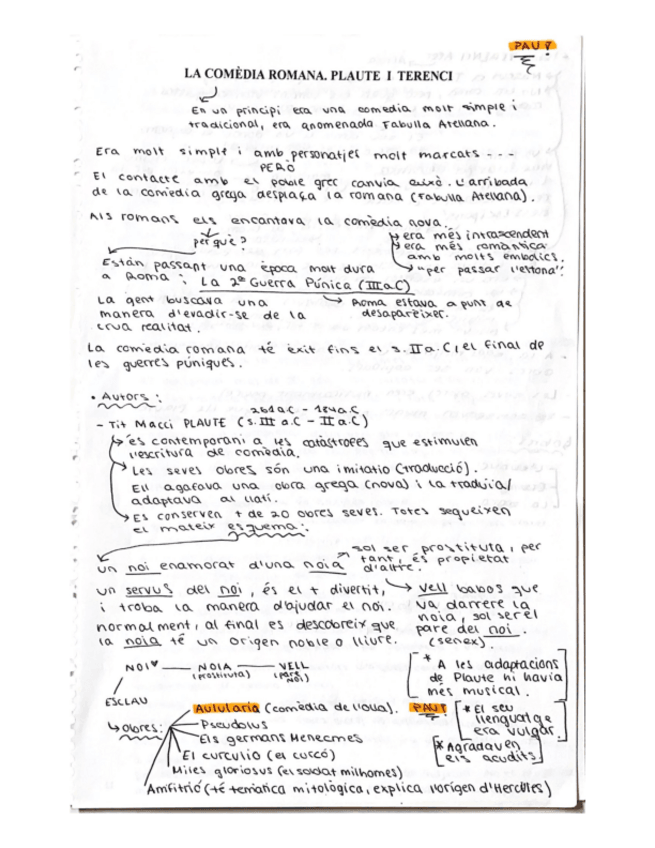 PAU !
LA COMÈDIA ROMANA. PLAUTE I TERENCI
En un principi era una comèdia molt simple i
tradicional, era anomenada Fabulla Atellana.
Era molt simple i amb personatjes molt marcats - - -
PERÒ
El contacte amb el poble grec canvia això. L'arribada
de la comèdia grega desplaça la romana (Fabulla Atellana).
Als romans els encantava la comèdia nova.
per què?
era més intrascendent
era més romàntica
amb molts embolics.
"per passar l'estona".
Están passant una època molt dura
a Roma: La 2ª Guerra Púnica (III a.C)
Roma estava a punt de
desaparèixer.
La gent buscava una
manera d'evadir-se de la
crua realitat.
La comèdia romana té èxit fins el s. II a.C, el final de
les guerres púniques.
• Autors:
- Tit Macci PLAUTE (s. III a.C - II a.C)
és contemporani a les catàstrofes que estimulen
l'escritura de comèdia.
Les seves obres són una imitatio (traducció).
Ell agafava una obra grega (nova) i la traduïa/
adaptava al llatí.
Es conserven + de 20 obres seves. Totes segueixen
el mateix esquema:
un noi enamorat d'una noia
sol ser prostituta, per
tant, és propietat
d'altre.
un servus del noi, és el + divertit,
i troba la manera d'ajudar el noi.
normalment, al final es descobreix que
la noia té un origen noble o lliure.
vell babos que
va darrere la
noia, sol ser el
pare del noi.
(senex).
NOI — NOIA — VELL
(prostituta) (pare NOI)
ESCLAU
* A les adaptacions
de Plaute hi havia
més musical.
Obres:
Aulularia (comèdia de l'olla). PAU!
Pseudolus
Els germans Menecmes
El curculio (el cuccó)
Miles gloriosus (el soldat milhomes)
Amfitrió (té temàtica mitològica, explica l'orígen d'Hèrcules)
* El seu
llenguatge
era vulgar
* Agradaven
els acudits